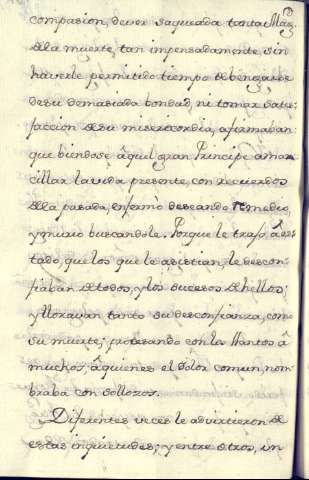 compasion, de ver saqueada tanta Mag.
de la muerte, tan impensadamente, sin
haverle permitido tiempo de bengarse
de su demasiada bondad, ni tomar satis-
faccion de su misericordia, afirmaban
que biendose âquel gran Principe aman
cillar la vida presente, con recuerdos
de la pasada, enfermò deseando remedio,
y murio buscandole. Porque le trajo â es-
tado, que los que le asistian, le descon-
fiaban de todos, y los sucesos de hellos;
y lloravan tanto su desconfianza, como
su muerte; protestando con los llantos â
muchos, âquienes el dolor comun, nom-
braba con sollozos.
Diferentes veces le advirtieron de
estas inquietudes; y entre otros, un